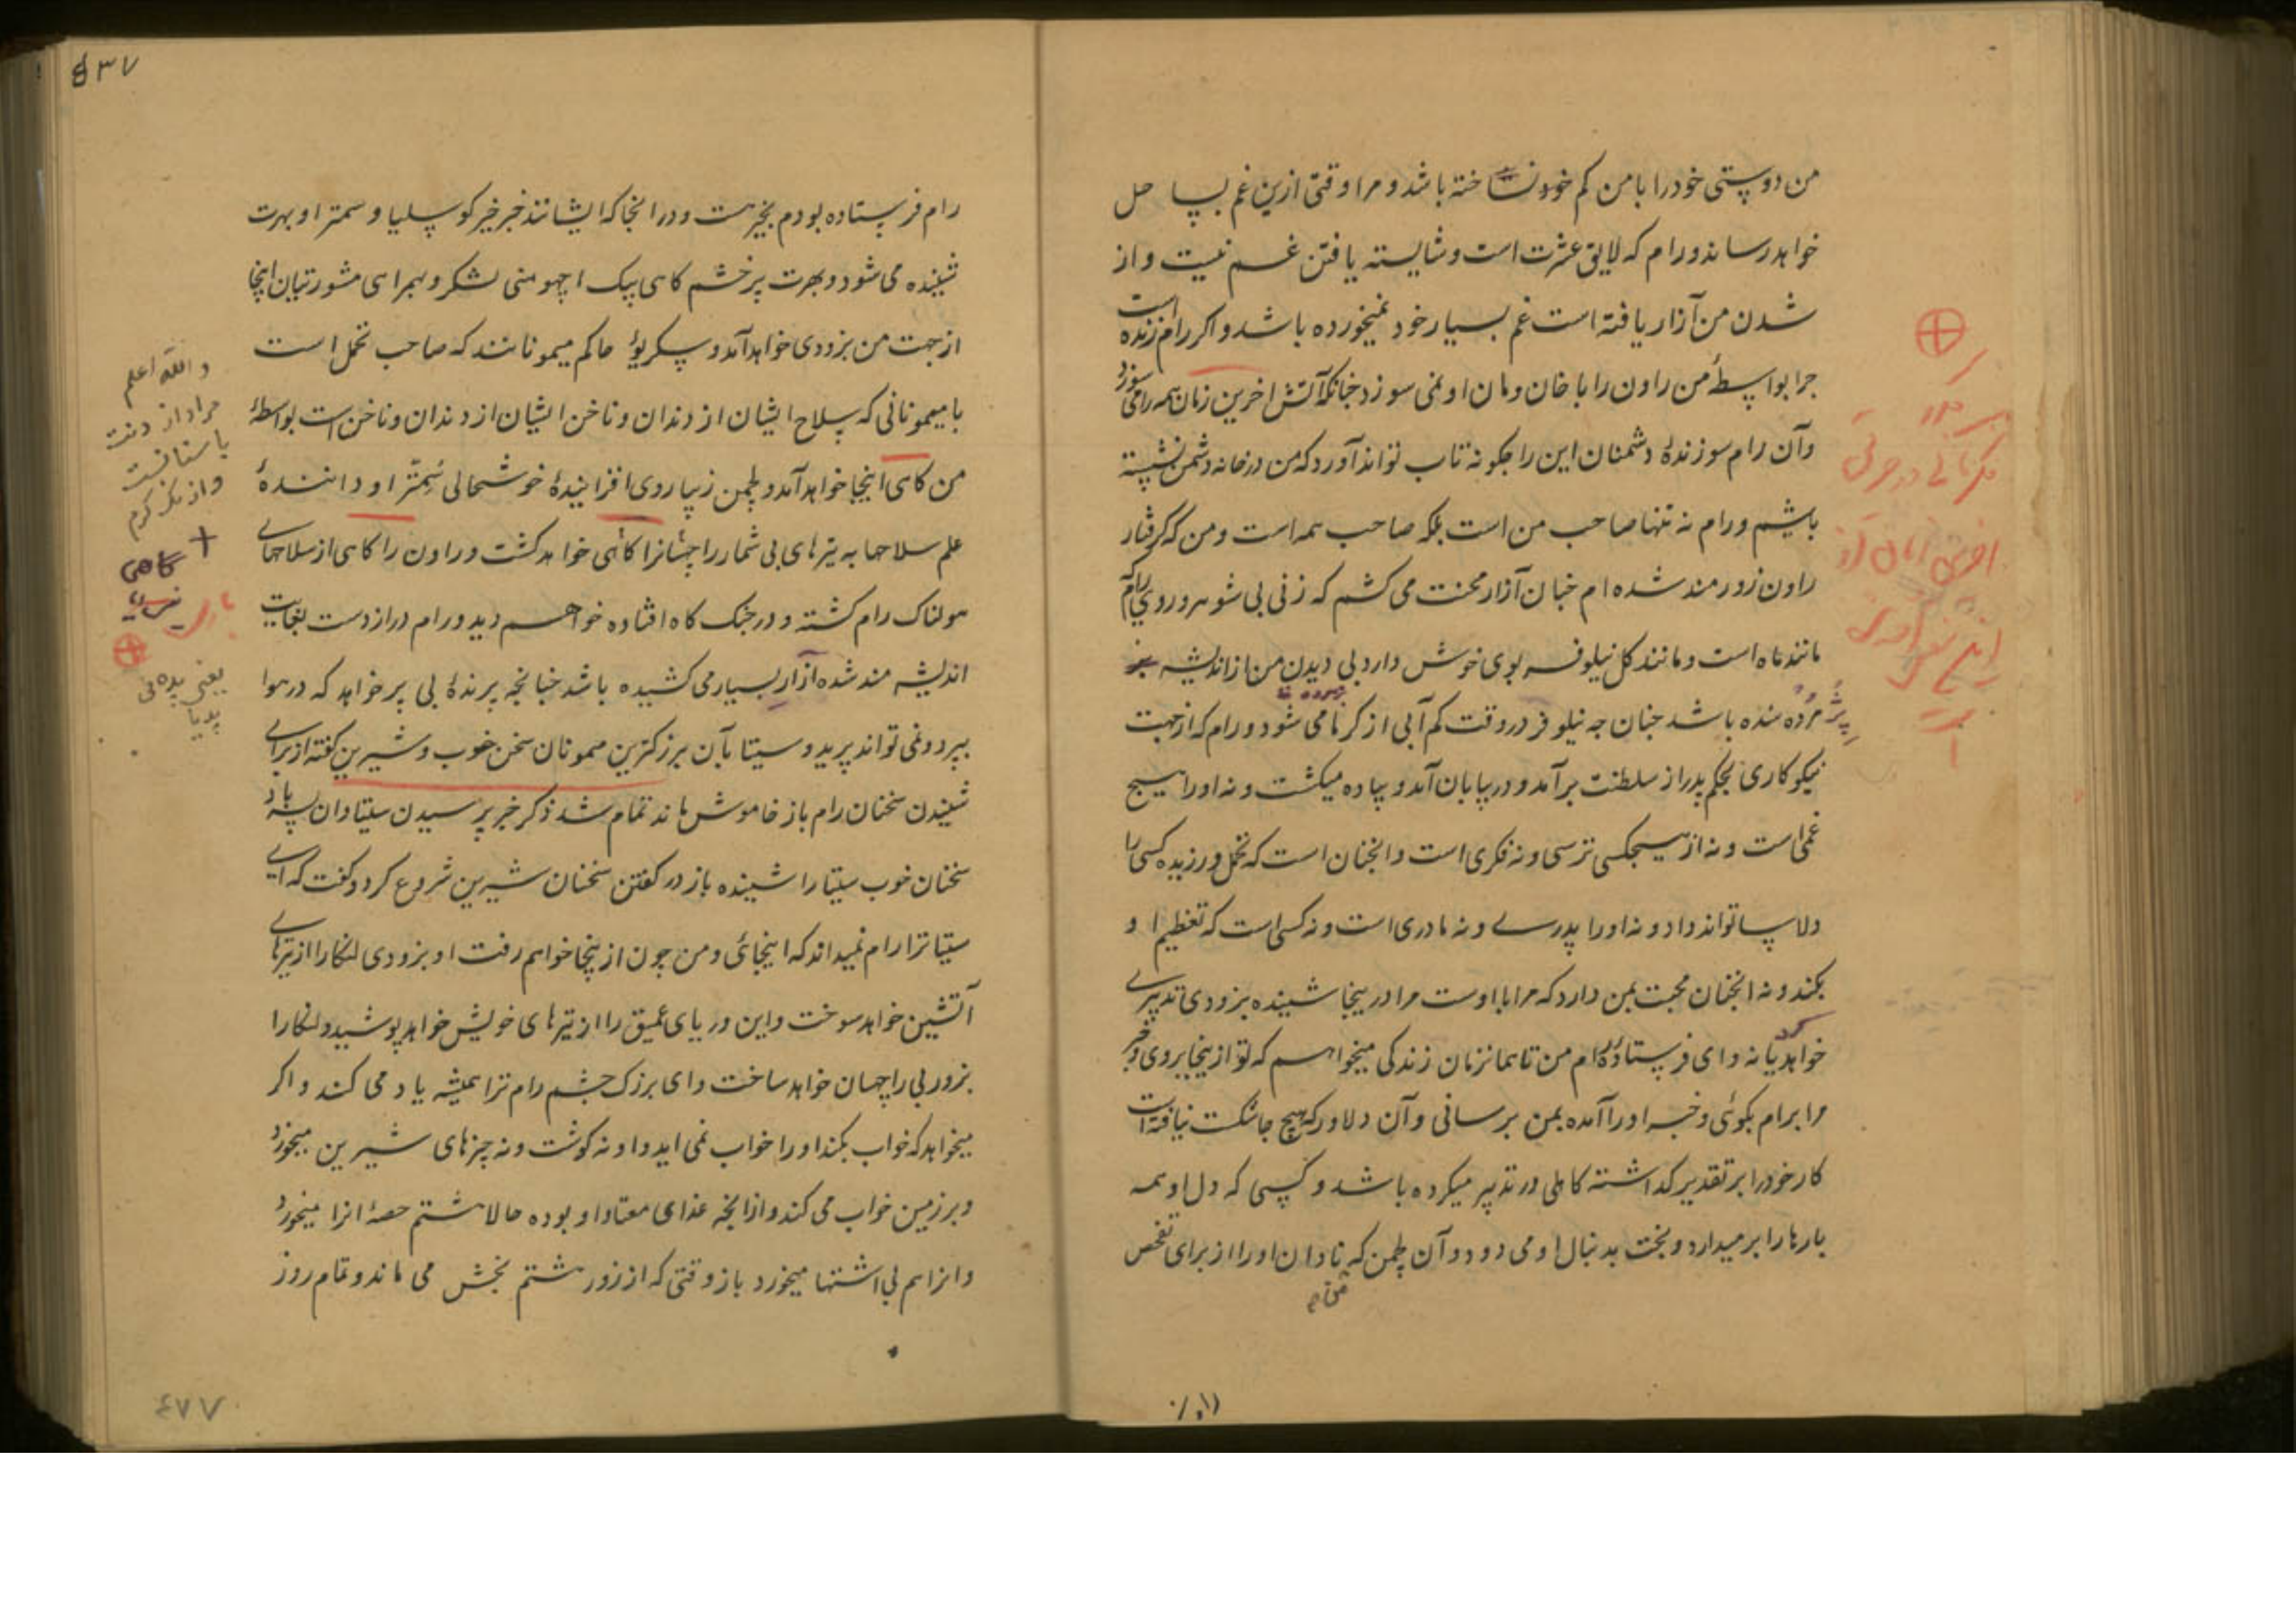 من دوستی خود را با من کم خود نساخته باشد و مرا وقتی ازین غم بسا حل
خواهد رساند و رام که لایق عشرت است و شایسته یافتن غم نیست و از
شدن من آزار یافته است غم بسیار خود نمیخورده باشد و اکر رام زنده است
جرا بواسطهٔ من راون را با خان ومان او نمی سوزد جنانکه آتش اخرین زمان همه را می سوزد
وآن رام سوزندهٔ دشمنان این را جکونه تاب تواند آورد که من در خانه دشمن نشسته
باشم و رام نه تنها صاحب من است بلکه صاحب همه است و من که کرفتار
راون زورمند شده ام جنان آزار محنت می کشم که زنی بی شوهر و روی رام که
مانند ماه است و مانند کل نیلوفر بوی خوش دارد بی دیدن من از اندیشه
پژمرده شده باشد جنان جه نیلوفر در وقت کم آبی از کرما می شود و رام که از جهت
نیکوکاری بحکم پدر از سلطنت برآمد و در بیابان آمد و پیاده میکشت و نه اورا هیچ
غمی است و نه از هیچکس ترسی و نه فکری است و انجنان است که تحمل ورزیده کسی را
دلاسا تواند داد و نه اورا پدرے و نه مادری است و نه کسی است که تعظیم او
بکند و نه انجنان محبت بمن دارد که مرا با اوست مرا در ینجا شنیده بزودی تدبیرے
خواهد کرد یا نه و ای فرستادهٔ رام من تا همانزمان زندکی میخواهم که تو از ینجا بروی و خبر
مرا برام بکوئی و خبر اورا آمده بمن برسانی وآن دلاور که هیچ جا شکست نیافته است
کار خود را بر تقدیر کذاشته کاهلی در تدبیر میکرده باشد و کسی که دل او همه
بارها را بر میدارد و بخت بدنبال او می دود و آن لچمن که نادان اورا از برای تفحص
رام فرستاده بودم بخیر هست و در انجا که ایشانند خبر خیر کوسلیا و سمترا و بهرت
شنیده می شود و بهرت پر خشم کاهی یک اچهوهنی لشکر و همراهی مشورتیان اینجا
از جهت من بزودی خواهد آمد و سکریو حاکم میمونانند که صاحب تحمل است
با میمونانی که سلاح ایشان از دندان و ناخن ایشان از دندان و ناخن است بواسطهٔ
من کاهی اینجا خواهد آمد و لچمن زیبا روی افزانیدهٔ خوشحالی سُمِترا و دانندهٔ
علم سلاحها به تیرهای بی شمار راچسانرا کاهی خواهد کشت و راون را کاهی از سلاحهاے
هولناک رام کشته و در جنک کاه افتاده خواهم دید و رام دراز دست بغایت
اندیشه مند شده آزار بسیار می کشیده باشد جنانجه پرندهٔ بی پر خواهد که در هوا
بپرد و نمی تواند پرید و سیتا بآن بزرکترین میمونان سخن خوب و شیرین کفته از براے
شنیدن سخنان رام باز خاموش ماند تمام شد ذکر خبر پرسیدن سیتا و ان
سخنان خوب سیتا را شنیده باز در کفتن سخنان شیرین شروع کرد و کفت که اے
سیتا ترا رام نمیداند که اینجائی و من چون از ینجا خواهم رفت او بزودی لنکا را از تیرهاے
آتشین خواهد سوخت و این دریای عمیق را از تیرهای خویش خواهد پوشید و لنکا را
بزور بی راچهسان خواهد ساخت و ای بزرک چشم رام ترا همیشه یاد می کند و اکر
میخواهد که خواب بکند اورا خواب نمی اید و او نه کوشت و نه چیزهای شیرین میخورد
و بر زمین خواب می کند و از انجه غذای معتاد او بوده حالا هشتم حصهٔ انرا میخورد
و انرا هم بی اشتها میخورد باز وقتی که از زور هشتم بخش می ماند و تمام روز
۴۷۷
والله اعلم
مراد از دنت
+ کاهی
یعنی